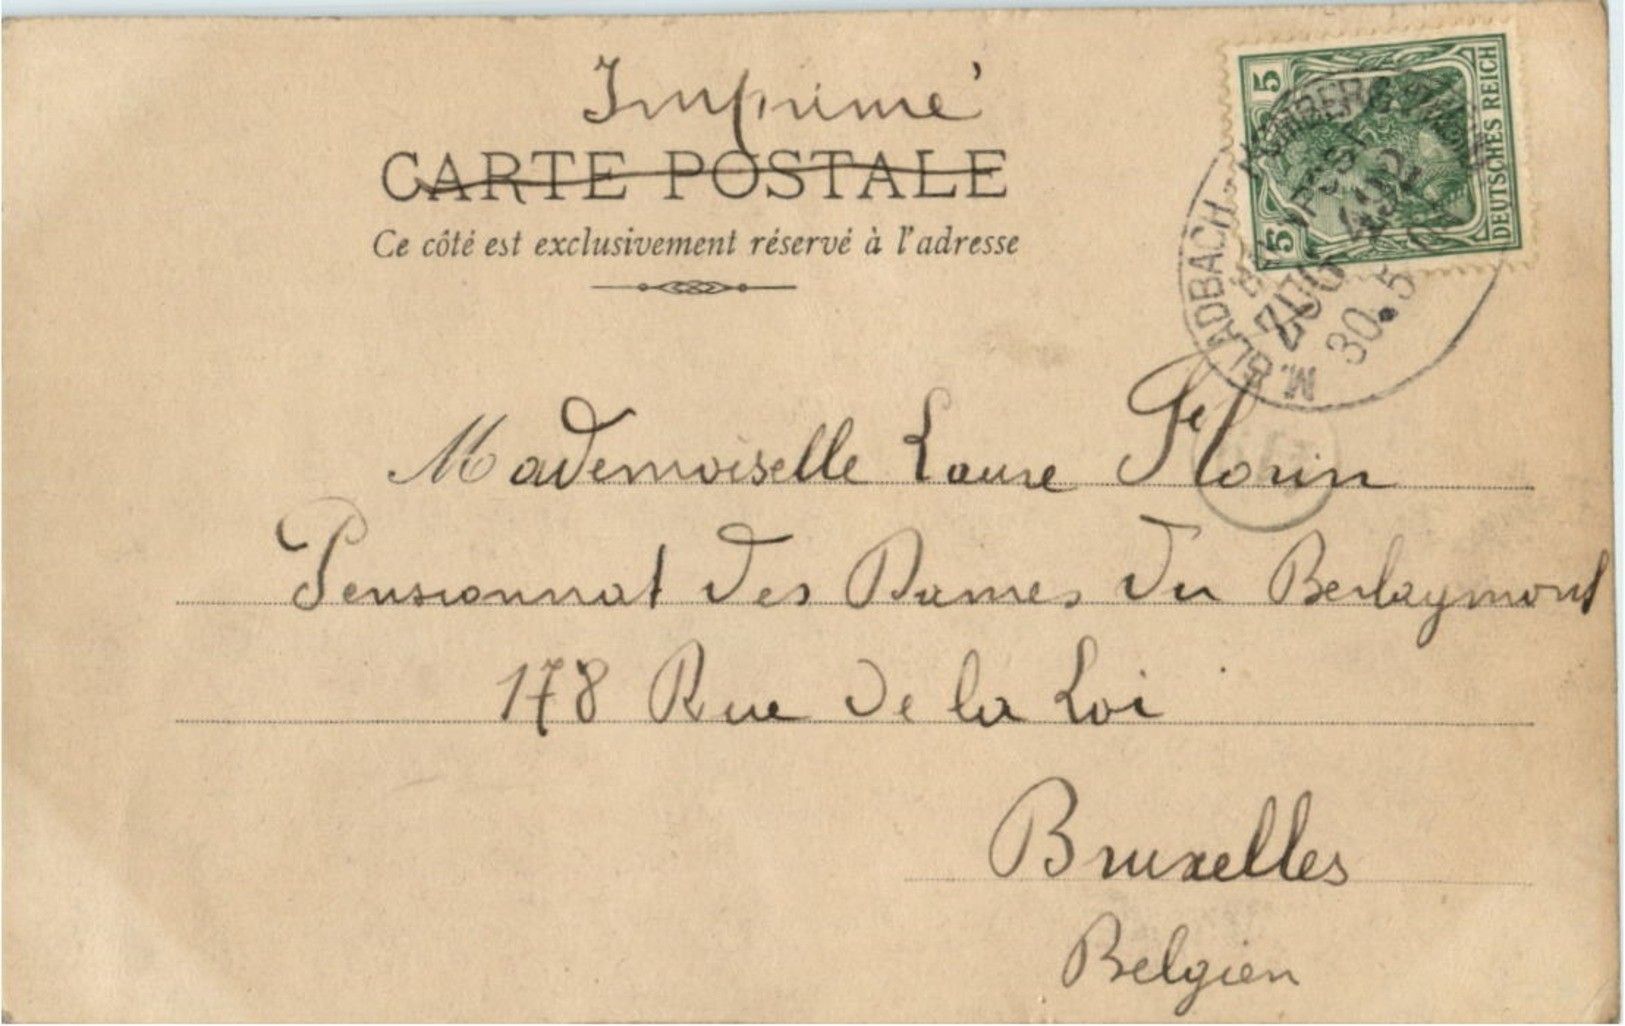 Imprimé
CARTE POSTALE
Ce côté est exclusivement réservé à l'adresse
5 5
DEUTSCHES REICH
M. GLADBACH - HOMBERG
BAHNPOST
ZUG 492
30.5
Mademoiselle Laure Florin
Pensionnat des Dames du Berlaymont
178 Rue de la Loi
Bruxelles
Belgien